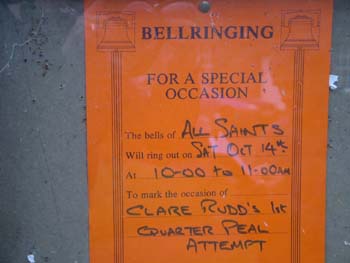 BELLRINGING
FOR A SPECIAL
OCCASION
The bells of ALL SAINTS
Will ring out on SAT OCT 14th
At 10-00 to 11-00AM
To mark the occasion of
CLARE RUDD'S 1st
QUARTER PEAL
ATTEMPT